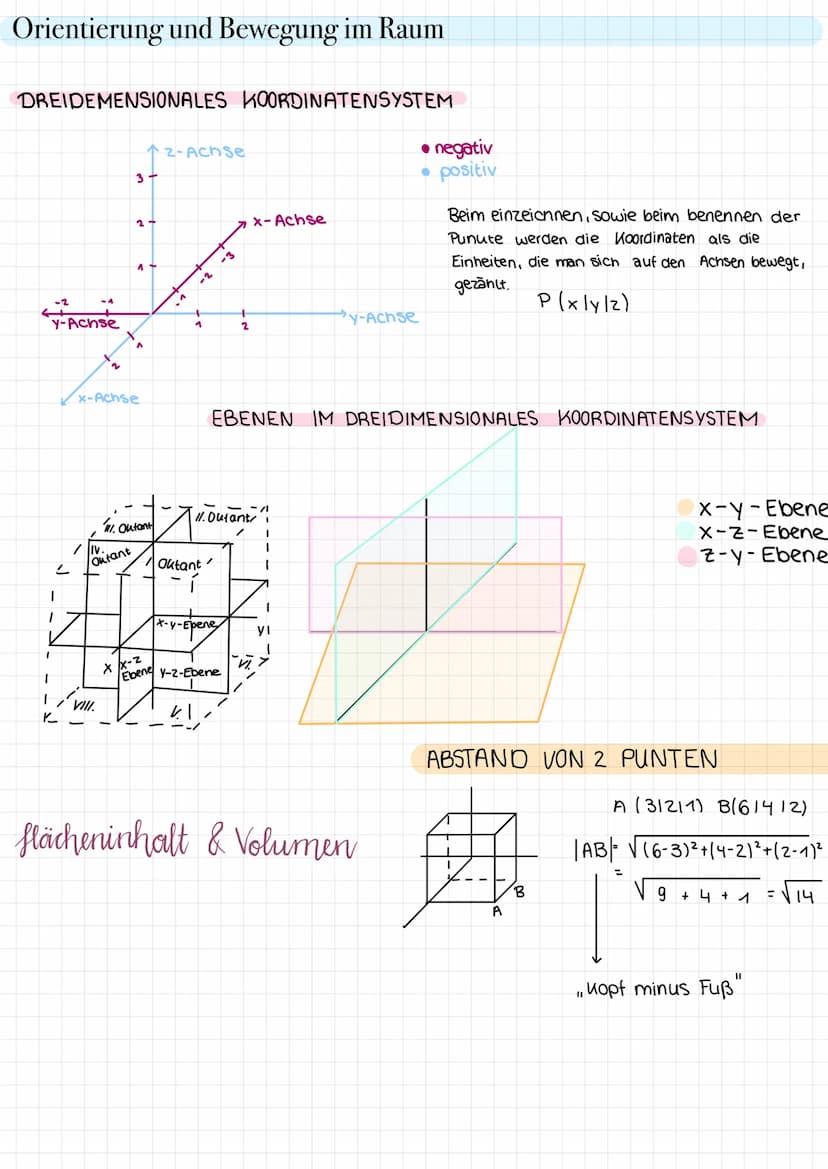 Orientierung und Bewegung im Raum
DREIDEMENSIONALES KOORDINATENSYSTEM
z-Achse
3
2
1
x-Achse
-3
-2
-1
-2 -1
y-Achse
1 2
y-Achse
1
2
x-Achse
• negativ
• positiv
Beim einzeichnen, sowie beim benennen der
Punkte werden die Koordinaten als die
Einheiten, die man sich auf den Achsen bewegt,
gezählt.
P (x|y|z)
EBENEN IM DREIDIMENSIONALES KOORDINATENSYSTEM
III. Oktant
II. Oktant
IV.
Oktant
Oktant
x-y-Ebene
y
x
x-z
Ebene
y-z-Ebene
VI.
VIII.
V.
x-y-Ebene
x-z-Ebene
z-y-Ebene
ABSTAND VON 2 PUNTEN
A (3|2|1) B(6|4|2)
|AB|= √(6-3)²+(4-2)²+(2-1)²
= √9 + 4 + 1 = √14
B
A
„Kopf minus Fuß"
Flächeninhalt & Volumen